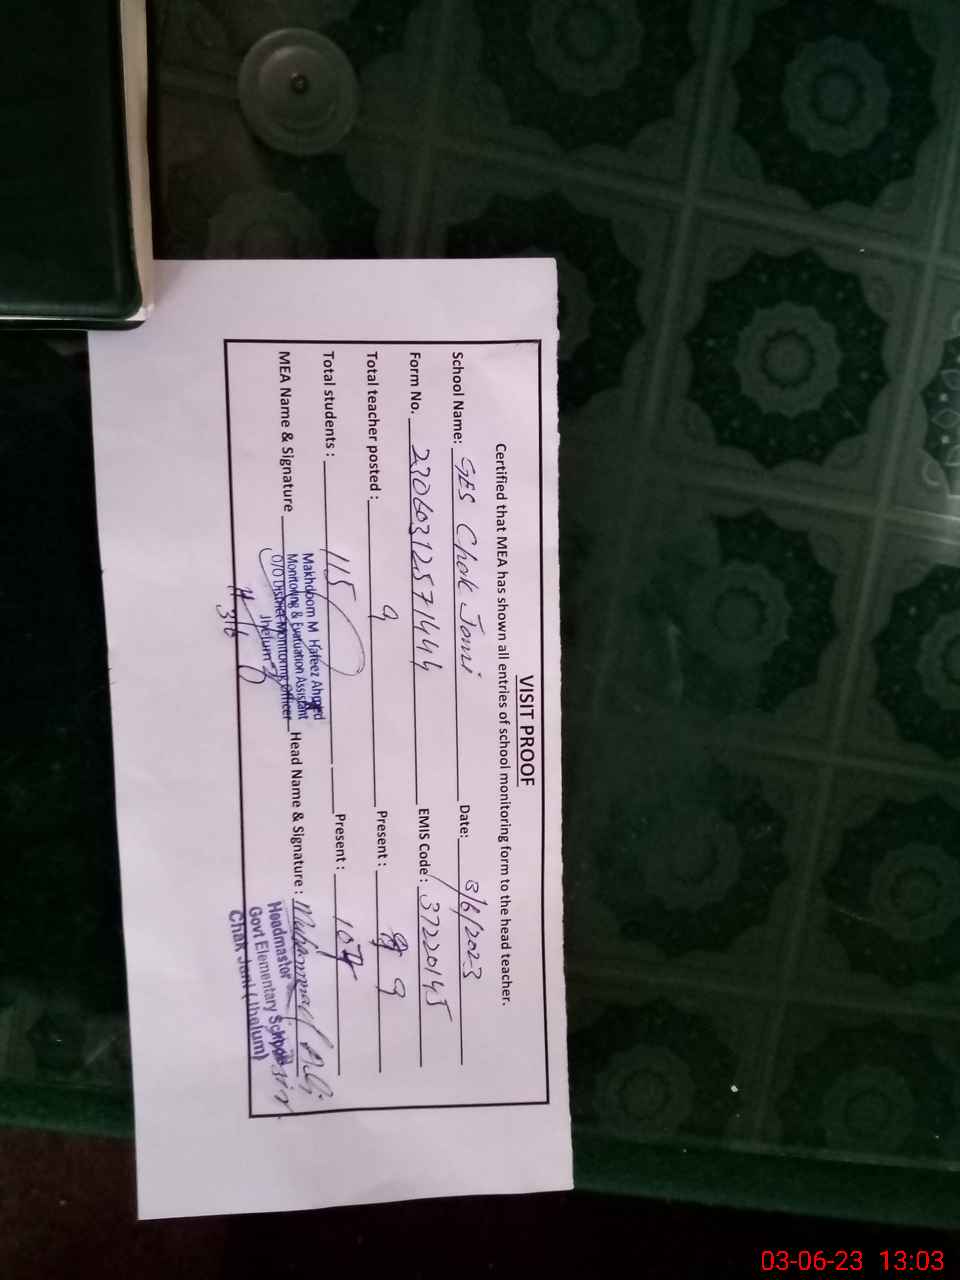 VISIT PROOF
Certified that MEA has shown all entries of school monitoring form to the head teacher.
School Name: GES Chak Jami Date: 3/6/2023
Form No. EMIS Code: 37220145
Total teacher posted : 9 Present : 9
Total students : 115 Present : 107
MEA Name & Signature Head Name & Signature : Muhammad Ali
Makhdoom M Hafeez Ahmed
Monitoring & Evaluation Assistant
O/O District Monitoring Officer
Jhelum
3/6
Headmaster
Govt Elementary School
Chak Jani (Jhelum)
03-06-23 13:03